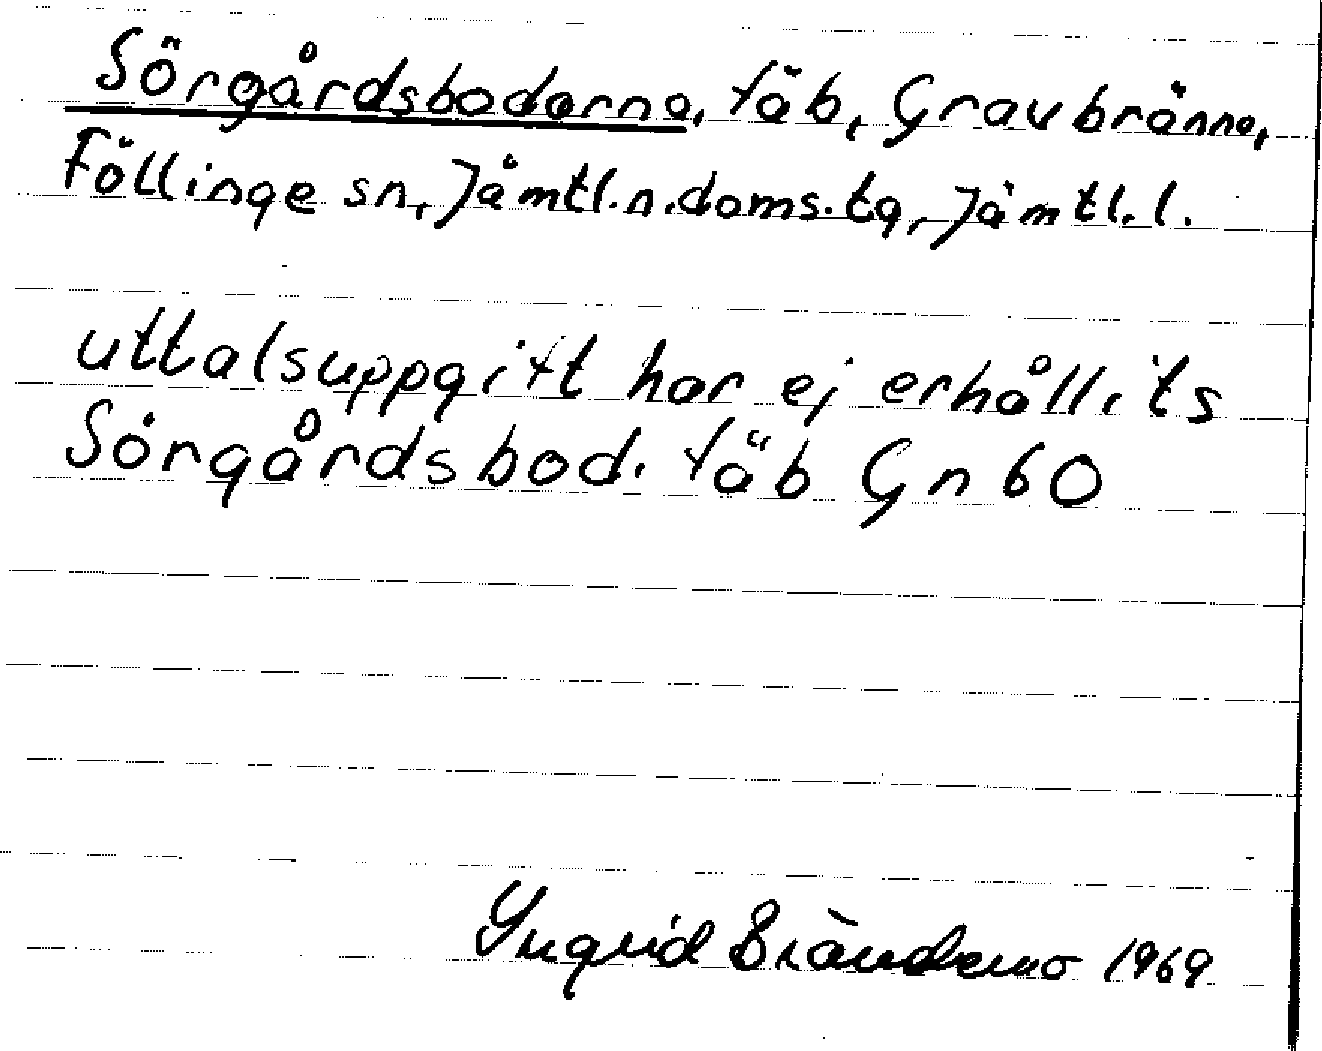 Sörgårdsbodarna, fäb, Gravbränna,
Föllinge sn, Jämtl.n.doms.tg, Jämtl.l.
uttalsuppgift har ej erhållits
Sörgårdsbod. fäb Gn 60
Ingrid Brändemo 1969